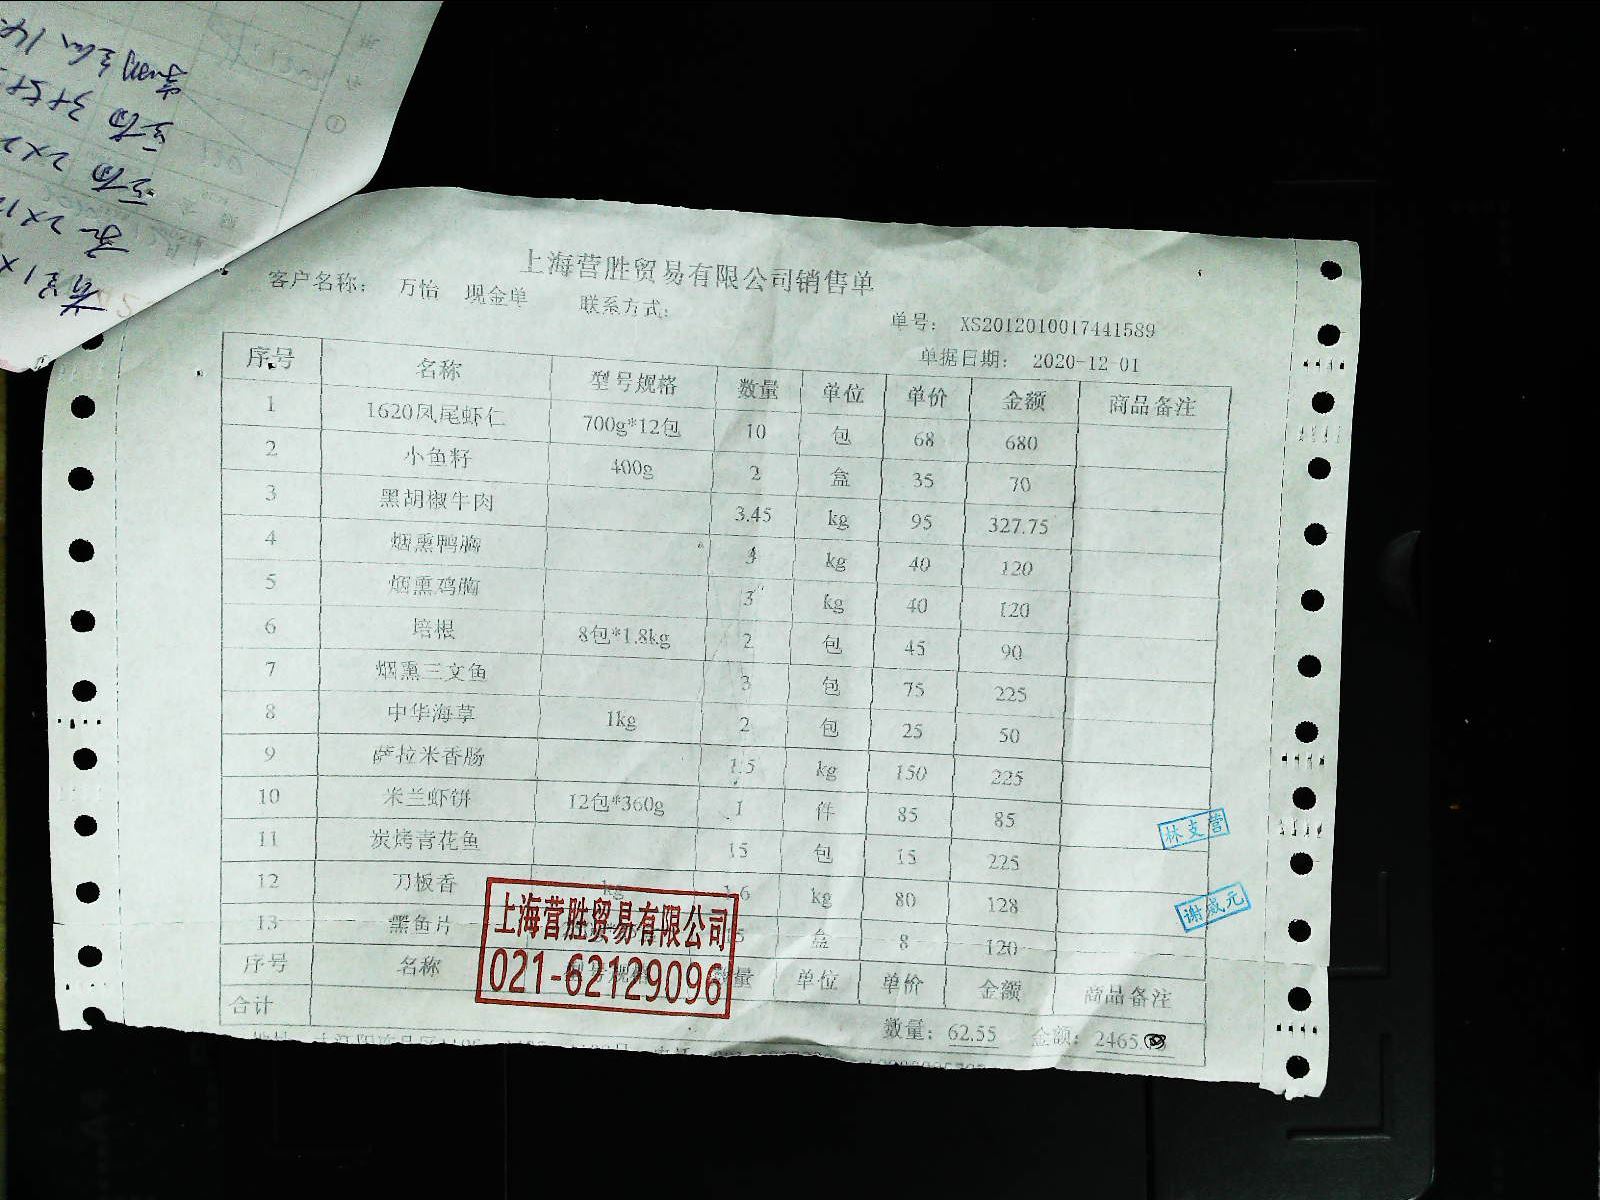 上海营胜贸易有限公司销售单
客户名称： 万怡 现金单 联系方式：
单号： XS2012010017441589
单据日期： 2020-12-01
序号 名称 型号规格 数量 单位 单价 金额 商品备注
1 1620凤尾虾仁 700g*12包 10 包 68 680
2 小鱼籽 400g 2 盒 35 70
3 黑胡椒牛肉 3.45 kg 95 327.75
4 烟熏鸭胸 kg 40 120
5 烟熏鸡胸 3 kg 40 120
6 培根 8包*1.8kg 2 包 45 90
7 烟熏三文鱼 3 包 75 225
8 中华海草 1kg 2 包 25 50
9 萨拉米香肠 1.5 kg 150 225
10 米兰虾饼 12包*360g 1 件 85 85
11 炭烤青花鱼 15 包 15 225
12 刀板香 kg 1.6 kg 80 128
13 黑鱼片 盒 8 120
序号 名称 型号规格 数量 单位 单价 金额 商品备注
合计 数量：62.55 金额：2465.
上海营胜贸易有限公司
021-62129096
林支营
谢威元